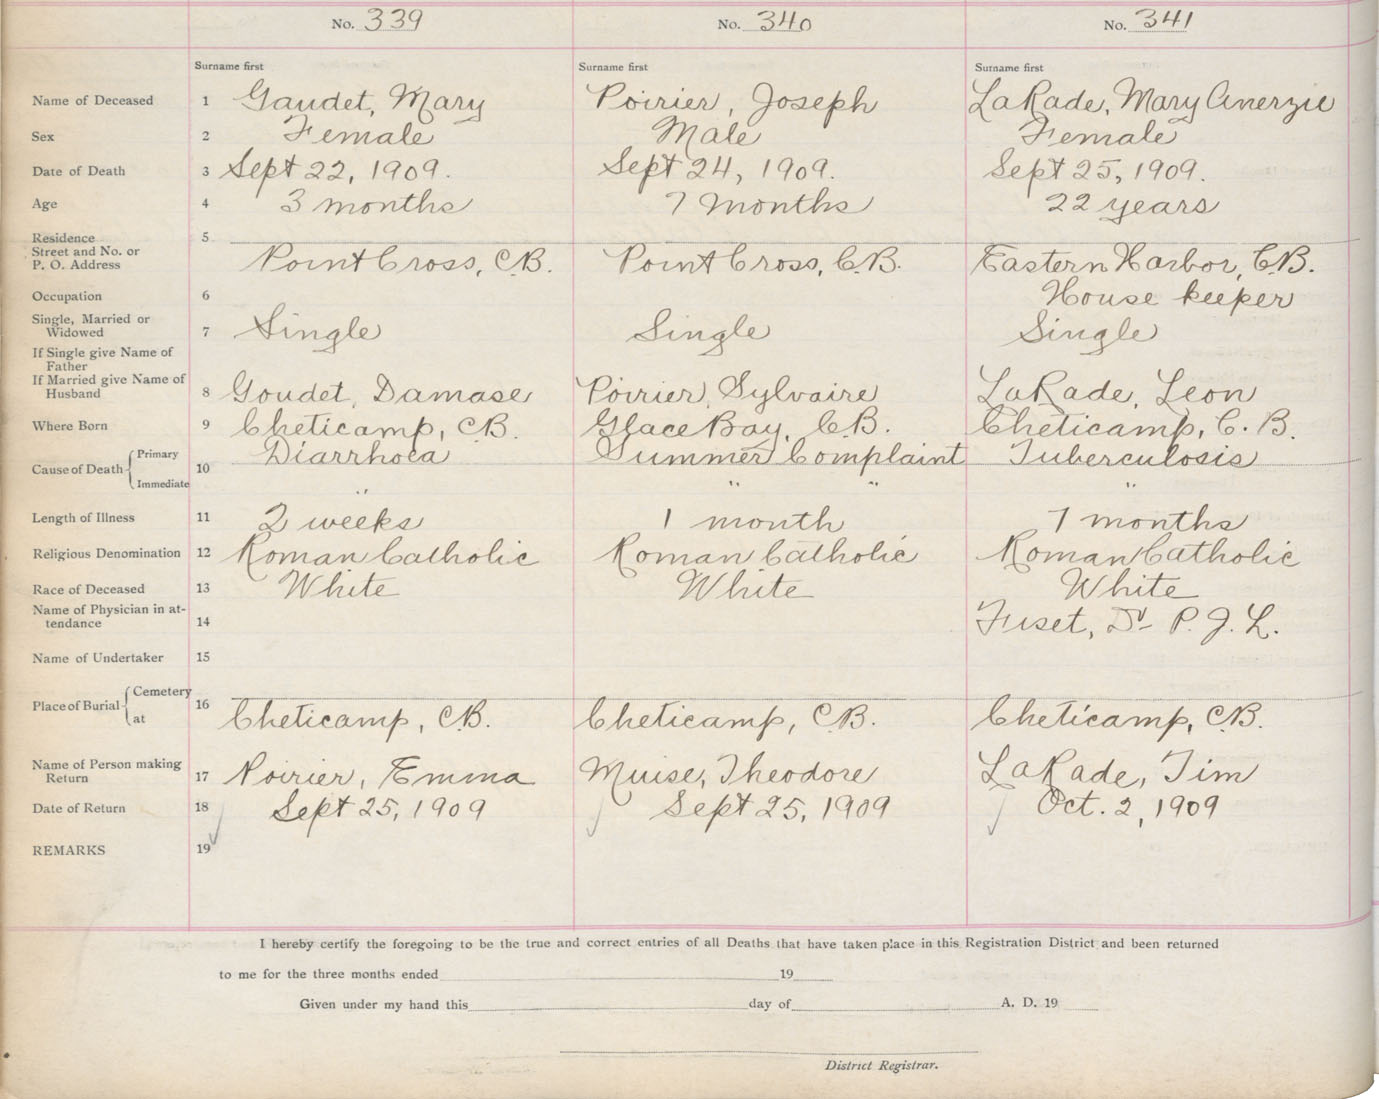 No. 339 No. 340 No. 341
Surname first Surname first Surname first
Name of Deceased 1 Gaudet, Mary Poirier, Joseph LaRade, Mary Anerzie
Sex 2 Female Male Female
Date of Death 3 Sept 22, 1909. Sept 24, 1909. Sept 25, 1909.
Age 4 3 months 7 Months 22 years
Residence 5
Street and No. or
P. O. Address Point Cross, C.B. Point Cross, C.B. Eastern Harbor, C.B.
Occupation 6 House keeper
Single, Married or
Widowed 7 Single Single Single
If Single give Name of
Father
If Married give Name of
Husband 8 Goudet, Damase Poirier, Sylvaire LaRade, Leon
Where Born 9 Cheticamp, C.B. Glace Bay, C.B. Cheticamp, C. B.
Cause of Death Primary 10 Diarrhoea Summer Complaint Tuberculosis
Immediate " " " "
Length of Illness 11 2 weeks 1 month 7 months
Religious Denomination 12 Roman Catholic Roman Catholic Roman Catholic
Race of Deceased 13 White White White
Name of Physician in at-
tendance 14 Fiset, Dr P. J. L.
Name of Undertaker 15
Place of Burial Cemetery 16
at Cheticamp, C.B. Cheticamp, C.B. Cheticamp, C.B.
Name of Person making
Return 17 Poirier, Emma Muise, Theodore LaRade, Tim
Date of Return 18 Sept 25, 1909 Sept 25, 1909 Oct. 2, 1909
REMARKS 19
I hereby certify the foregoing to be the true and correct entries of all Deaths that have taken place in this Registration District and been returned
to me for the three months ended 19
Given under my hand this day of A. D. 19
District Registrar.